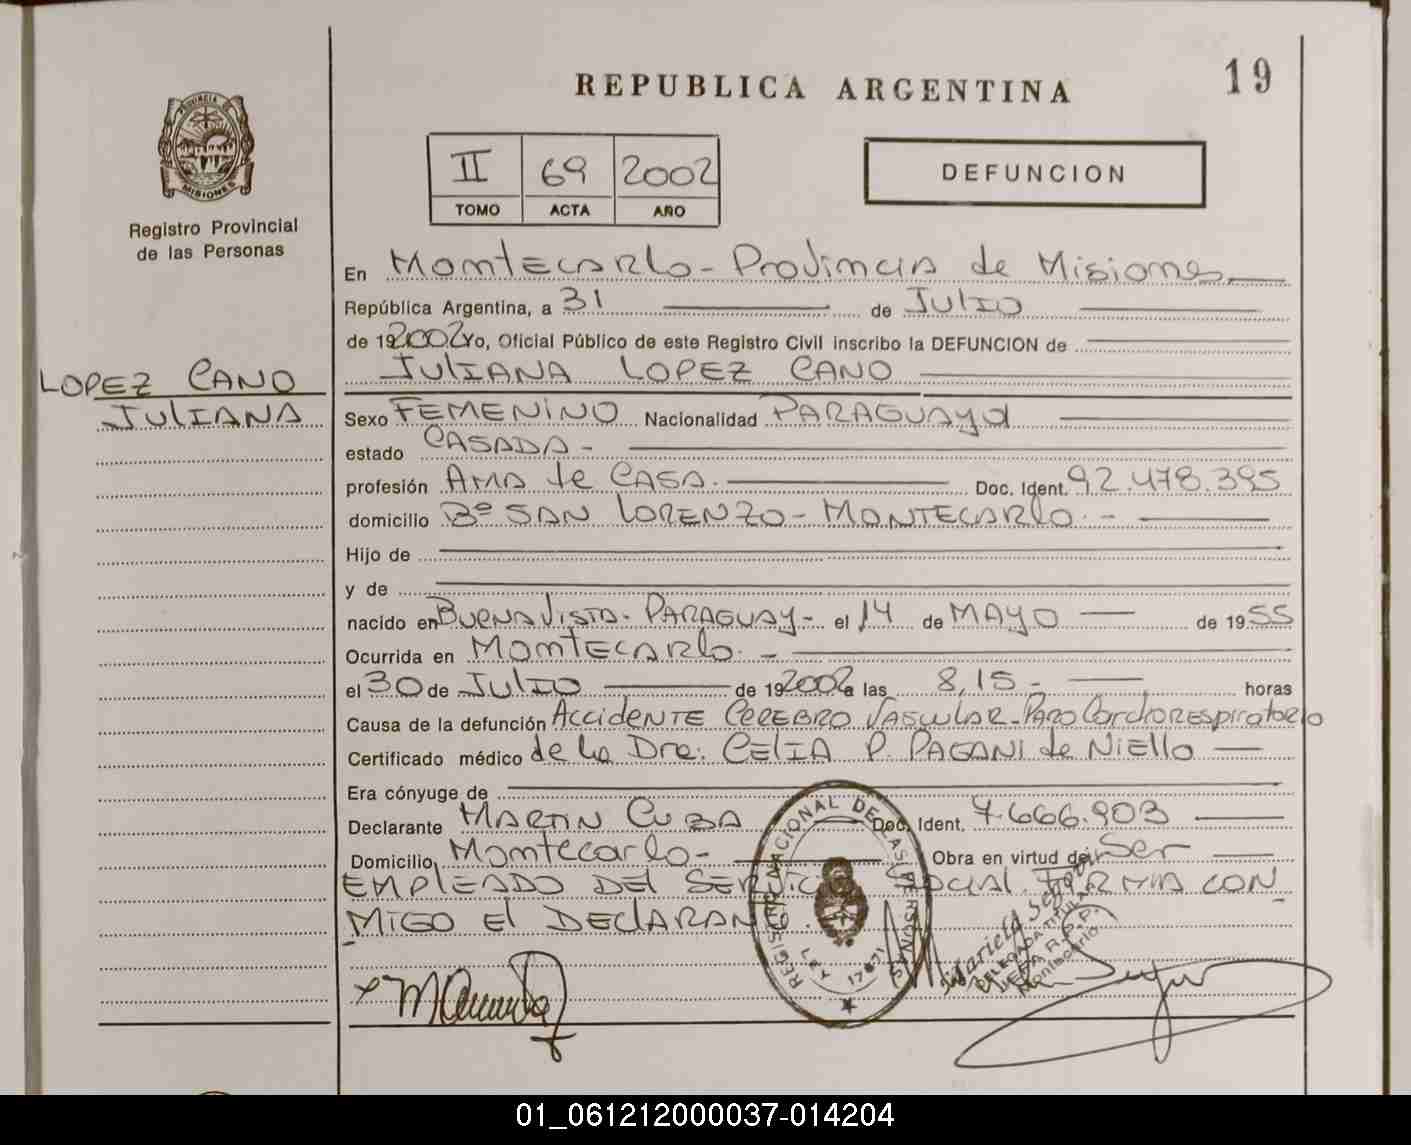 REPUBLICA ARGENTINA
19
PROVINCIA DE
MISIONES
Registro Provincial
de las Personas
II 69 2002
TOMO ACTA AÑO
DEFUNCION
En Montecarlo - Provincia de Misiones
República Argentina, a 31 de Julio
de 19 2002 Yo, Oficial Público de este Registro Civil inscribo la DEFUNCION de
JULIANA LOPEZ CANO
LOPEZ CANO
JULIANA
Sexo FEMENINO Nacionalidad PARAGUAYA
estado CASADA -
profesión AMA de CASA. Doc. Ident. 92.478.395
domicilio Bº SAN LORENZO - MONTECARLO. -
Hijo de
y de
nacido en BUENA VISTA - PARAGUAY - el 14 de MAYO de 1955
Ocurrida en MONTECARLO. -
el 30 de Julio de 19 2002 a las 8,15 - horas
Causa de la defunción ACCIDENTE CEREBRO VASCULAR - PARO CardioRESPIRATORIO
Certificado médico de la Dra. CELIA P. PAGANI de NIELLO
Era cónyuge de
Declarante MARTIN CUBA Doc. Ident. 7.666.903
Domicilio Montecarlo - Obra en virtud de Ser
EMPLEADO DEL SERVICIO SOCIAL. FIRMA CON
MIGO El DECLARANTE.
REGISTRO NACIONAL DE LAS PERSONAS
LEY 17671
Mariela
DELEGADA TITULAR
R.P.P.
Montecarlo
01_061212000037-014204